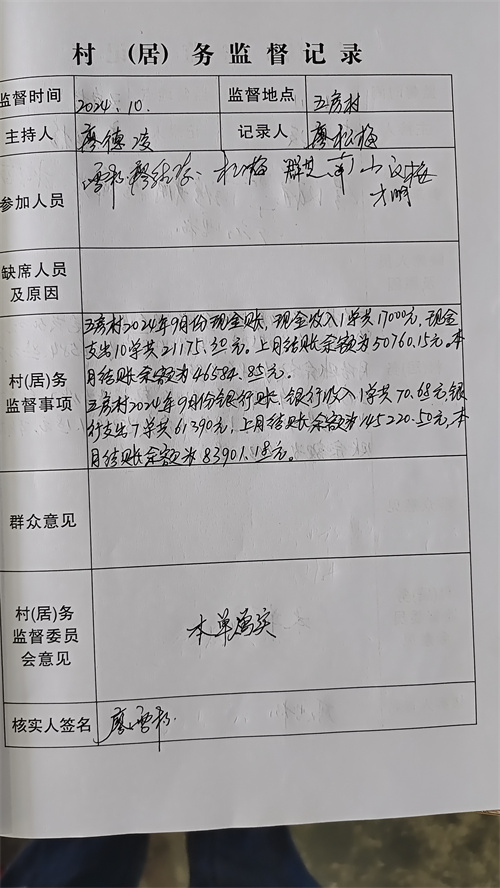 村 (居) 务 监 督 记 录
监督时间 2024.10. 监督地点 五房村
主持人 廖德凌 记录人 廖松梅
参加人员 松梅 群芝
缺席人员
及原因
五房村2024年9月份现金账,现金收入1笔共17000元,现金
支出10笔共21175.30元。上月结账余额为50760.15元。本
月结账余额为46584.85元。
村(居)务
监督事项
五房村2024年9月份银行账,银行收入1笔共70.68元,银
行支出7笔共61390元,上月结账余额为145220.50元,本
月结账余额为83901.18元。
群众意见
村(居)务
监督委员
会意见
本单属实
核实人签名 廖雪彬